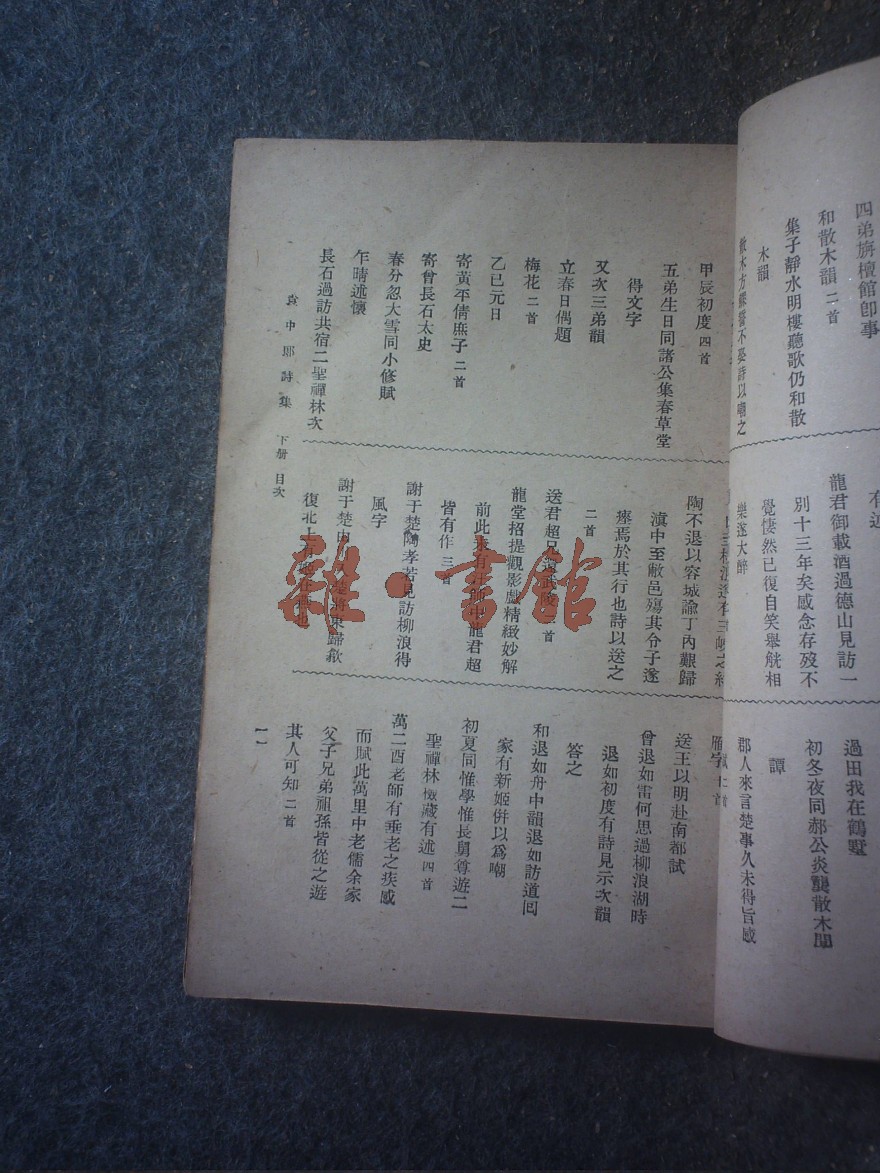 四弟旃檀館卽事
和散木韻二首
集子靜水明樓聽歌仍和散
木韻
有近
龍君御載酒過德山見訪一
別十三年矣感念存歿不
覺悽然已復自笑舉觥相
樂遂大醉
過田我在鶴墅
初冬夜同郝公炎龔散木聞
譚
郡人來言楚事久未得旨感
甲辰初度四首
五弟生日同諸公集春草堂
得文字
又次三弟韻
立春日偶題
梅花二首
乙巳元日
寄黃平倩庶子二首
寄曾長石太史
春分忽大雪同小修賦
乍晴述懷
長石過訪共宿二聖禪林次
陶不退以容城諭丁內艱歸
滇中至敝邑殤其令子遂
瘞焉於其行也詩以送之
二首
送君超兄
二首
龍堂招提觀影戲精緻妙解
前此未有
龍君超
皆有作三
謝于楚
孝若見訪柳浪得
風字
謝于楚
將東歸歙
復北上
雁字
二首
送王以明赴南都試
曾退如雷何思過柳浪湖時
退如初度有詩見示次韻
答之
和退如舟中韻退如訪道囘
家有新姬併以爲嘲
初夏同惟學惟長舅尊遊二
聖禪林懺藏有述四首
萬二酉老師有垂老之疾感
而賦此萬里中老儒余家
父子兄弟祖孫皆從之遊
其人可知二首
袁中郎詩集 下册 目次
一一
雜·書館